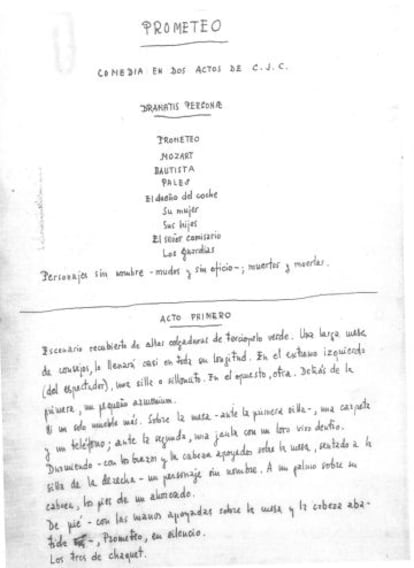 PROMETEO
COMEDIA EN DOS ACTOS DE C.J.C.
DRAMATIS PERSONÆ
PROMETEO
MOZART
BAUTISTA
PALES
El dueño del coche
Su mujer
Sus hijos
El señor comisario
Los guardias
Personajes sin nombre - mudos y sin oficio -; muertos y muertas.
ACTO PRIMERO
Escenario recubierto de altas colgaduras de terciopelo verde. Una larga mesa
de consejos, lo llenará casi en toda su longitud. En el extremo izquierdo
(del espectador), una silla o silloncito. En el opuesto, otra. Detrás de la
primera, un pequeño armonium.
Ni un solo mueble más. Sobre la mesa - ante la primera silla -, una carpeta
y un teléfono; ante la segunda, una jaula con un loro vivo dentro.
Durmiendo - con los brazos y la cabeza apoyados sobre la mesa, sentado a la
silla de la derecha - un personaje sin nombre. A un palmo sobre su
cabeza, los pies de un ahorcado.
De pié - con las manos apoyadas sobre la mesa y la cabeza aba-
tida -, Prometeo, en silencio.
Los tres de chaquet.